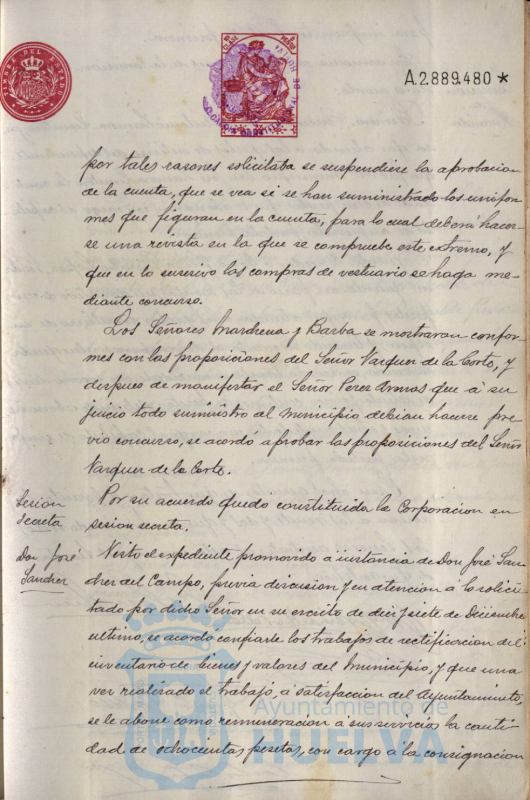 A.2.889.480 *
por tales rasones solicitaba se suspendiese la aprobacion
de la cuenta, que se vea si se han suministrado los unifor-
mes que figuran en la cuenta, para lo cual deberá hacer-
se una revista en la que se compruebe este extremo, y
que en lo sucesivo las compras de vestuario se haga me-
diante concurso.
Los Señores Marchena y Barba se mostraran confor-
mes con las proposiciones del Señor Vazquez de la Corte, y
despues de manifestar el Señor Perez Armas que á su
juicio todo suministro al Municipio debian hacerse pre-
vio concurso, se acordó aprobar las proposiciones del Señor
Vazquez de la Corte.
Sesion
Secreta
Por su acuerdo quedó constituida la Corporacion en
sesion secreta.
Don José
Sanchez
Visto el expediente promovido á instancia de Don José San-
chez del Campo, previa discusion y en atencion á lo solici-
tado por dicho Señor en su escrito de diez y siete de Diciembre
ultimo, se acordó confiarle los trabajos de rectificacion del
inventario de bienes y valores del Municipio, y que una
vez realizado el trabajo, á satisfaccion del Ayuntamiento,
se le abone como remuneracion á sus servicios la canti-
dad de ochocientas pesetas, con cargo á la consignacion
Ayuntamiento de
HUELVA